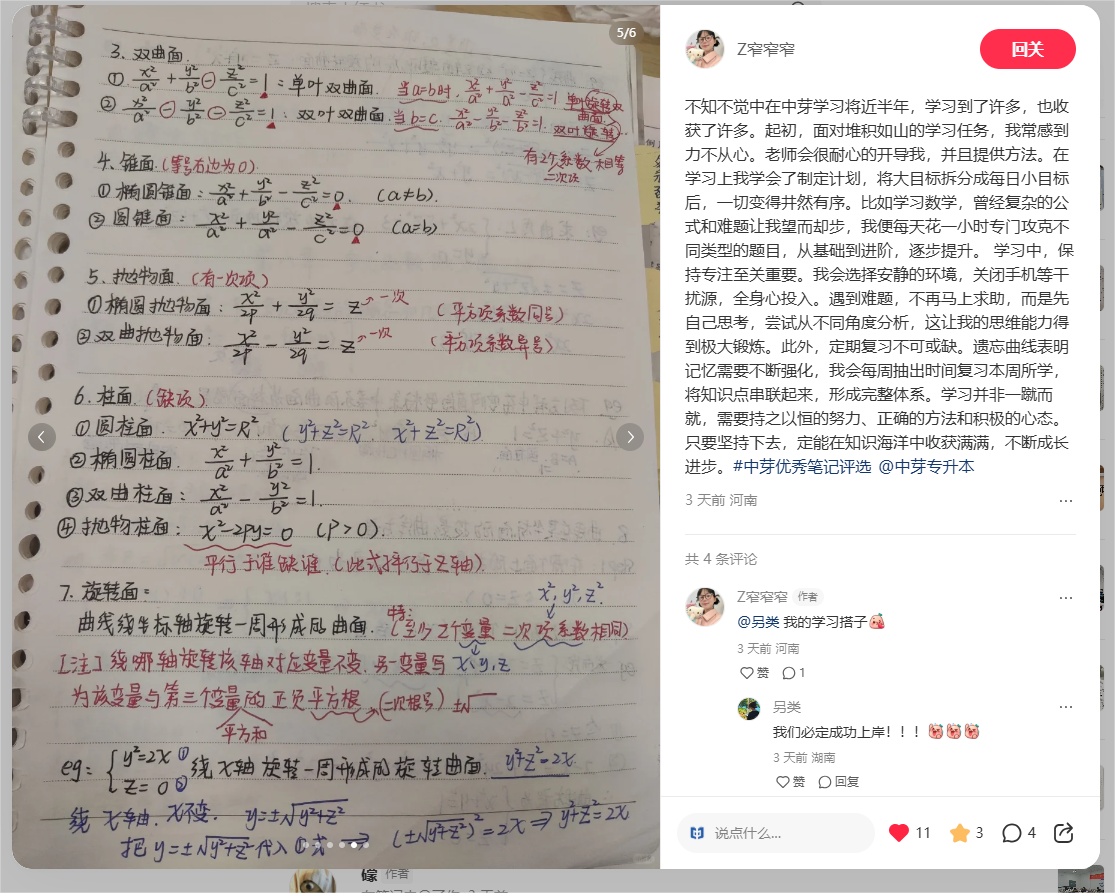 5/6
3. 双曲面.
① x²/a² + y²/b² ⊖ z²/c² = 1 : 单叶双曲面. 当a=b时, x²/a² + y²/a² - z²/c² = 1 单叶旋转双曲面.
② x²/a² ⊖ y²/b² ⊖ z²/c² = 1 : 双叶双曲面. 当b=c. x²/a² - y²/b² - z²/b² = 1. 双叶旋转
有2个系数相等
二次项
4. 锥面.(等号右边为0)
① 椭圆锥面: x²/a² + y²/b² - z²/c² = 0. (a≠b).
② 圆锥面: x²/a² + y²/a² - z²/c² = 0 (a=b)
5. 抛物面.(有一次项)
① 椭圆抛物面: x²/2p + y²/2q = z → 一次 (平方项系数同号)
② 双曲抛物面: x²/2p - y²/2q = z → 一次 (平方项系数异号)
6. 柱面.(缺项)
① 圆柱面 x²+y²=R². (y²+z²=R². x²+z²=R²)
② 椭圆柱面. x²/a² + y²/b² = 1.
③ 双曲柱面: x²/a² - y²/b² = 1.
④ 抛物柱面: x²-2py=0 (P>0).
平行于谁缺谁.(此式平行于Z轴)
7. 旋转面: x², y², z².
曲线绕坐标轴旋转一周形成的曲面. 特: (至少2个变量 二次项系数相同)
[注] 绕哪轴旋转该轴对应变量不变. 另一变量写 x、y、z
为该变量与第三个变量的正负平方根 (二次根号) ±√
平方和
eg: { y²=2x ① z=0 ② 绕x轴旋转一周形成的旋转曲面. y²+z²=2x.
绕x轴. x不变. y=±√y²+z²
把y=±√y²+z²代入①式 → (±√y²+z²)²=2x ⇒ y²+z²=2x
Z窄窄窄
回关
不知不觉中在中芽学习将近半年，学习到了许多，也收
获了许多。起初，面对堆积如山的学习任务，我常感到
力不从心。老师会很耐心的开导我，并且提供方法。在
学习上我学会了制定计划，将大目标拆分成每日小目标
后，一切变得井然有序。比如学习数学，曾经复杂的公
式和难题让我望而却步，我便每天花一小时专门攻克不
同类型的题目，从基础到进阶，逐步提升。 学习中，保
持专注至关重要。我会选择安静的环境，关闭手机等干
扰源，全身心投入。遇到难题，不再马上求助，而是先
自己思考，尝试从不同角度分析，这让我的思维能力得
到极大锻炼。此外，定期复习不可或缺。遗忘曲线表明
记忆需要不断强化，我会每周抽出时间复习本周所学，
将知识点串联起来，形成完整体系。学习并非一蹴而
就，需要持之以恒的努力、正确的方法和积极的心态。
只要坚持下去，定能在知识海洋中收获满满，不断成长
进步。#中芽优秀笔记评选 @中芽专升本
3 天前 河南
共 4 条评论
Z窄窄窄 作者
@另类 我的学习搭子
3 天前 河南
赞 1
另类
我们必定成功上岸！！！
3 天前 湖南
赞 回复
说点什么...
11 3 4
作者